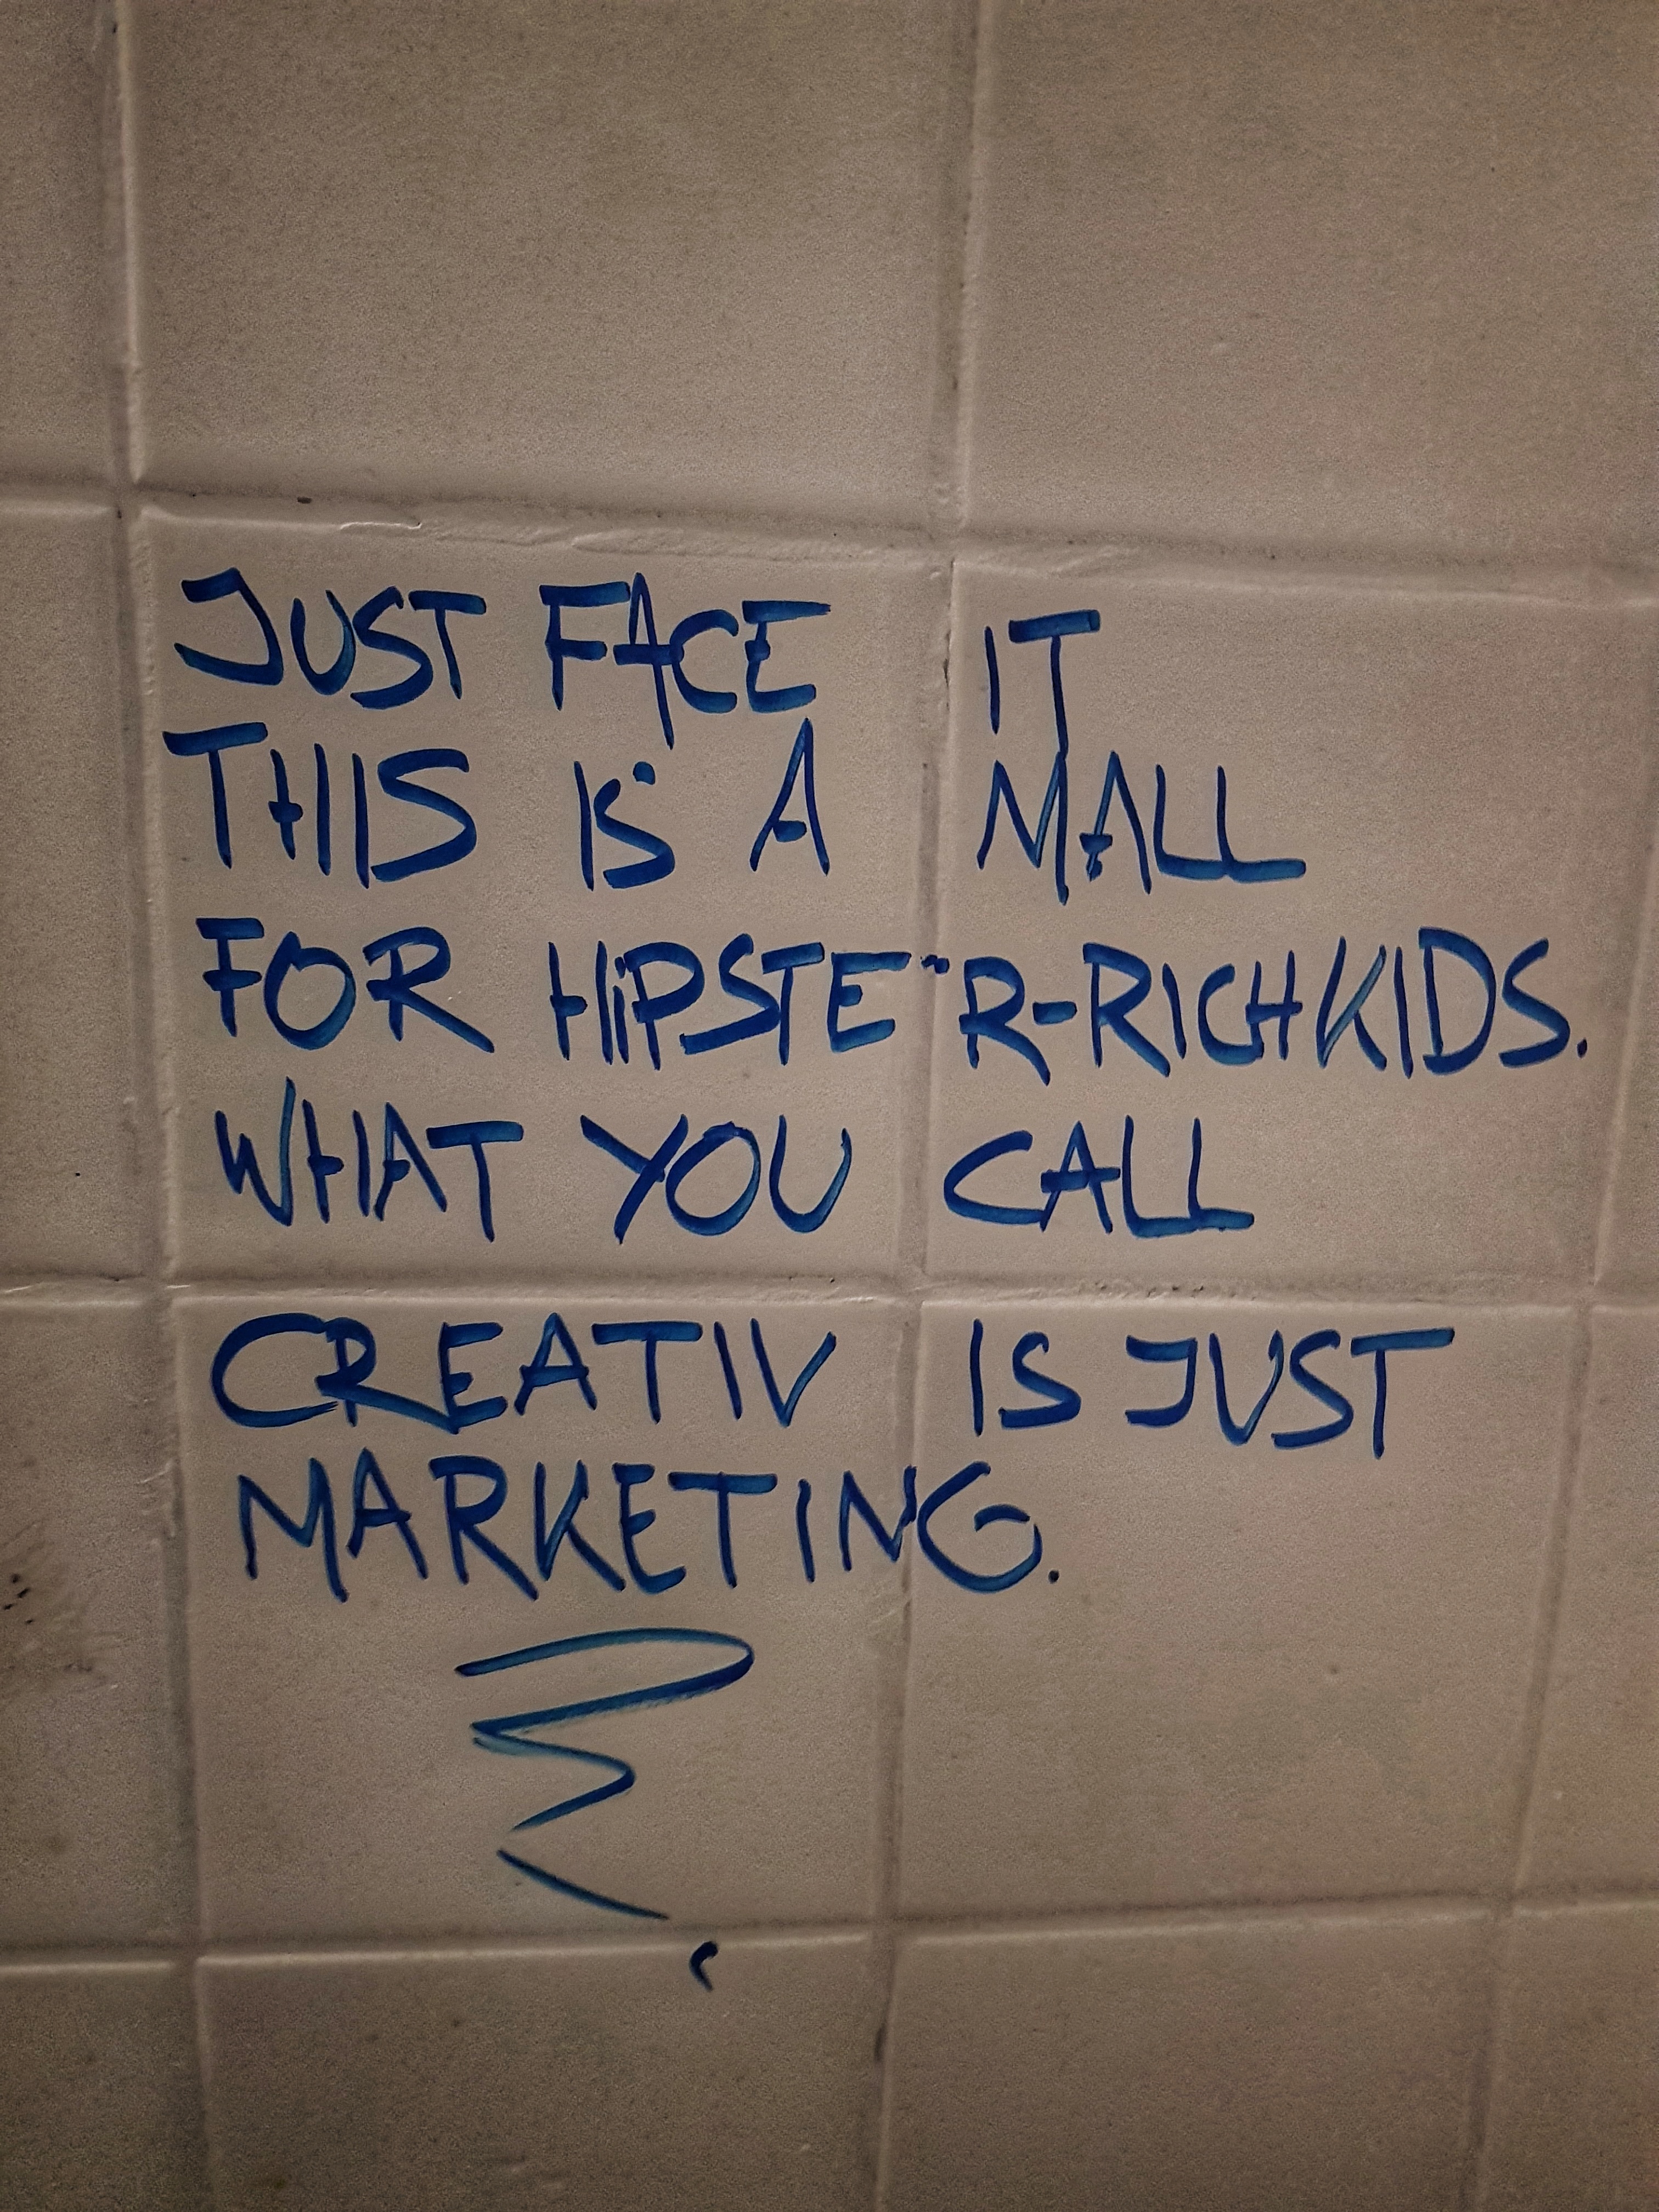 JUST FACE IT
THIS IS A MALL
FOR HIPSTER-RICHKIDS.
WHAT YOU CALL
CREATIV IS JUST
MARKETING.